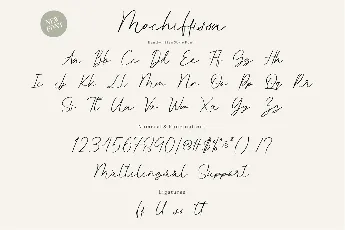 NEW
FONT
Mochiffison
Aa Bb Cc Dd Ee Ff Gg Hh
Kk Ll Mm Nn Oo Pp Qq Rr
Ss Tt Uu Vv Ww Xx Yy Zz
1234567890
Multilingual Support
Ligatures
tt